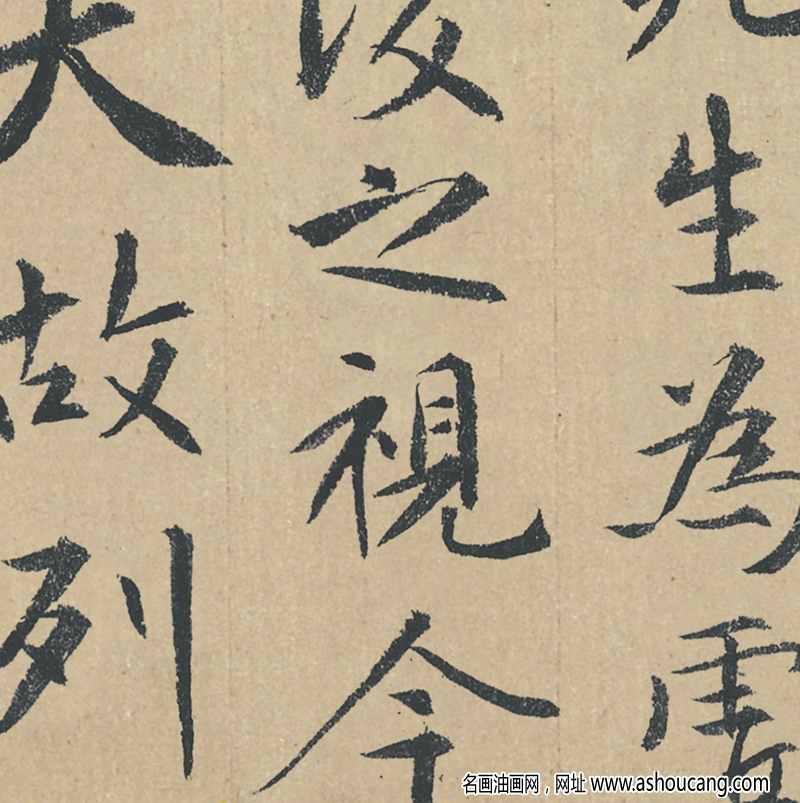 生為虛
後之視今
夫故列
名画油画网，网址 www.ashoucang.com